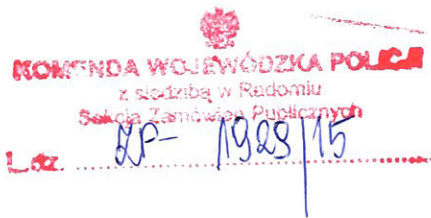 KOMENDA WOJEWÓDZKA POLICJI
z siedzibą w Radomiu
Sekcja Zamówień Publicznych
L.dz. ZP- 1929/15